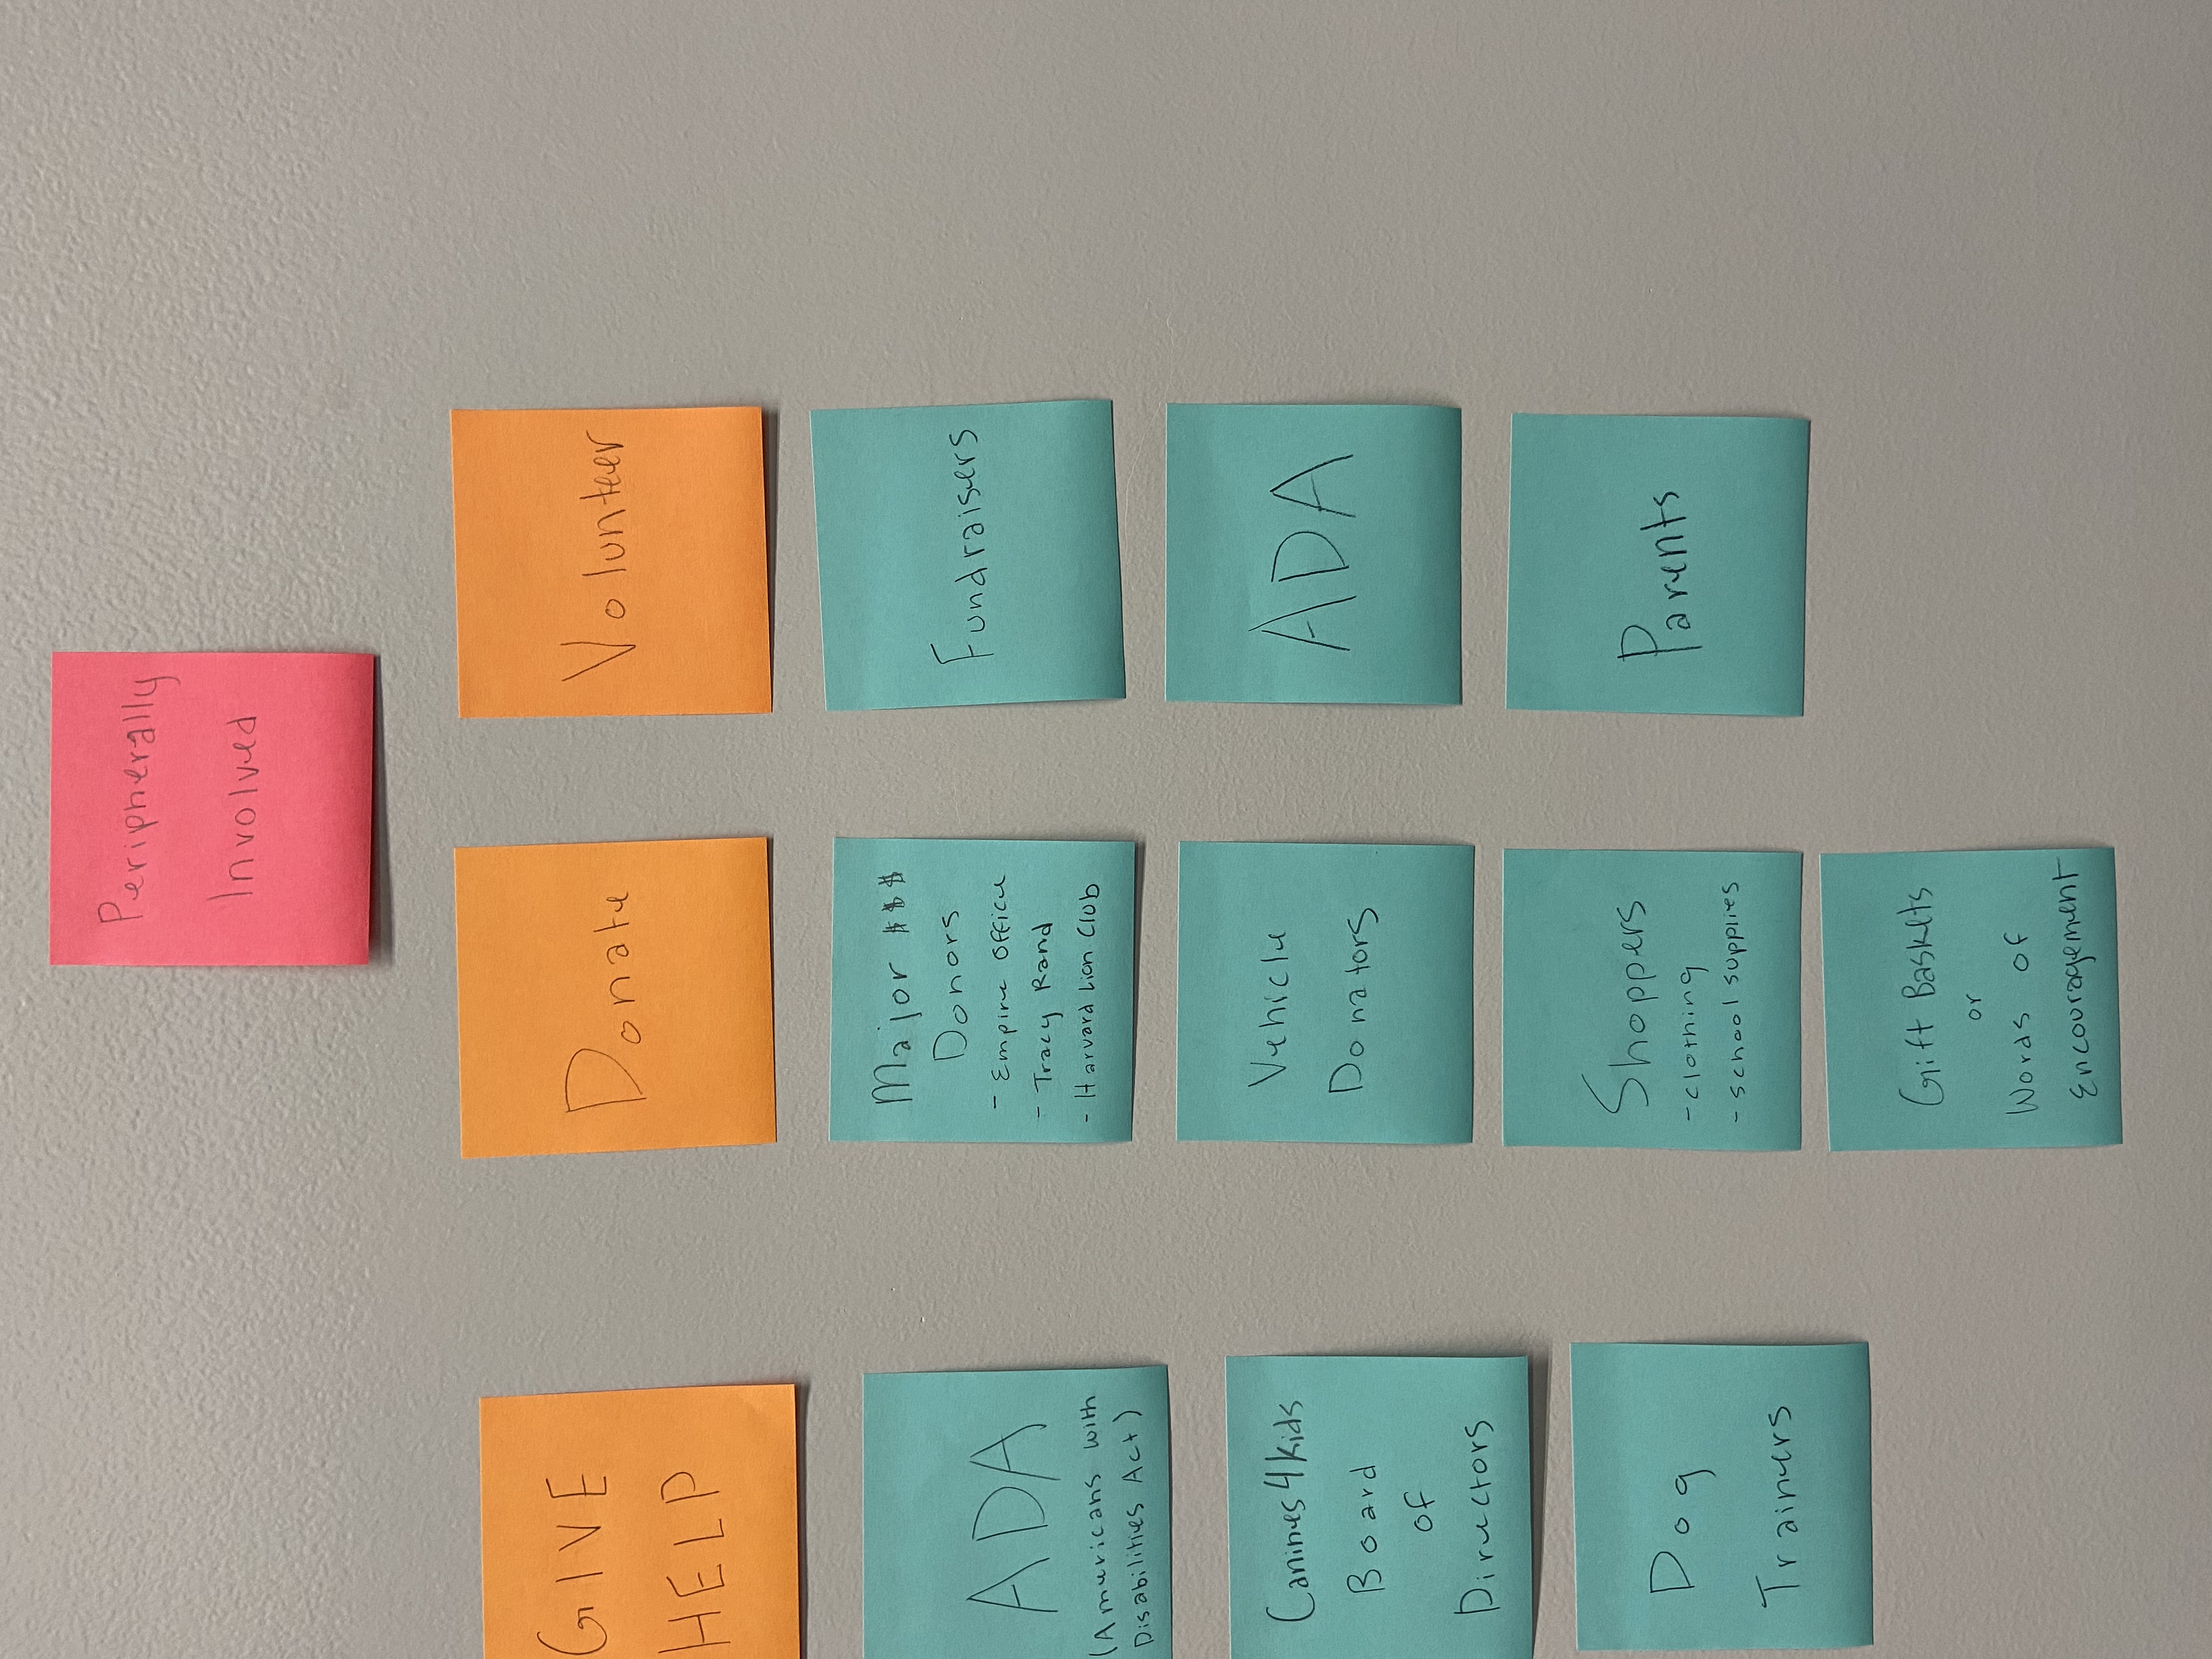 Peripherally
Involved
GIVE
HELP
ADA
(Americans with
Disabilities Act)
Canines4Kids
Board
of
Directors
Dog
Trainers
Donate
Major $$$
Donors
- Empire Office
- Tracy Rand
- Harvard Lion Club
Vehicle
Donators
Shoppers
- clothing
- school supplies
Gift Baskets
or
Words of
Encouragement
Volunteer
Fundraisers
ADA
Parents